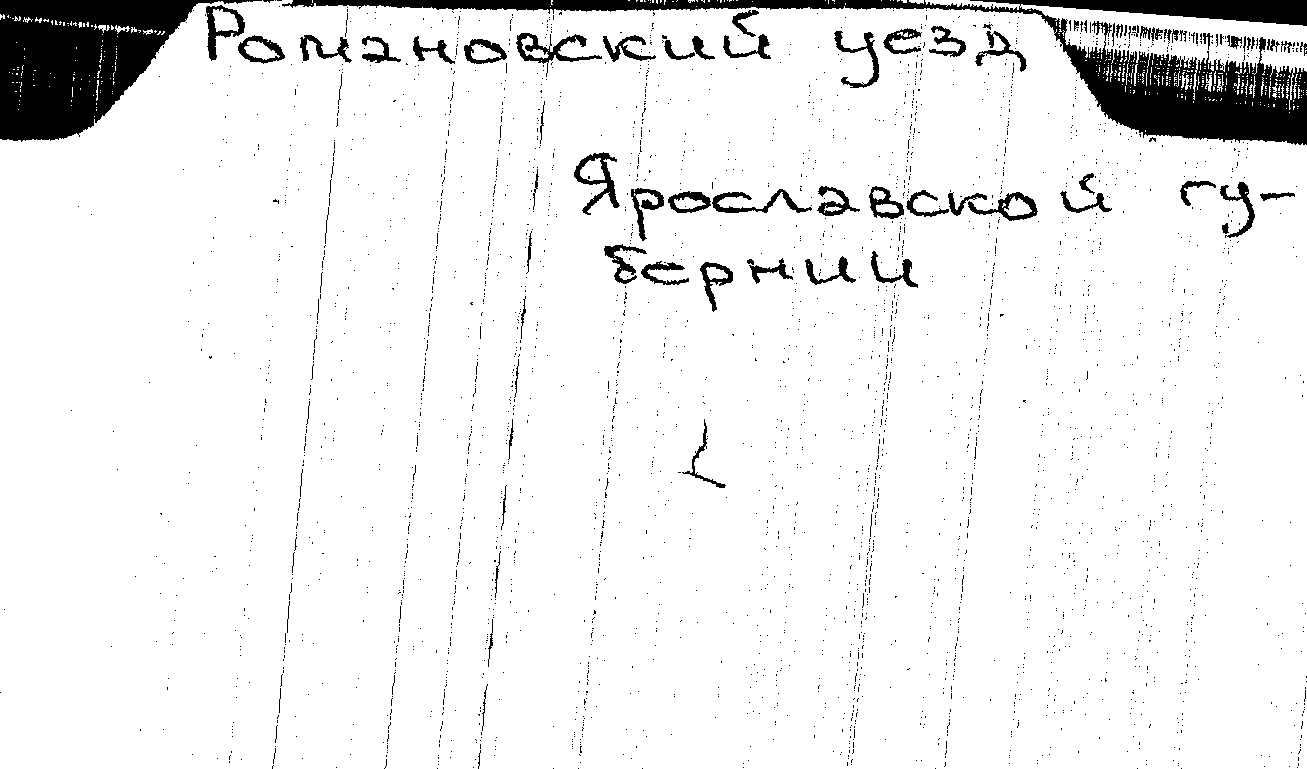 Романовский уезд
Ярославской гу-
бернии